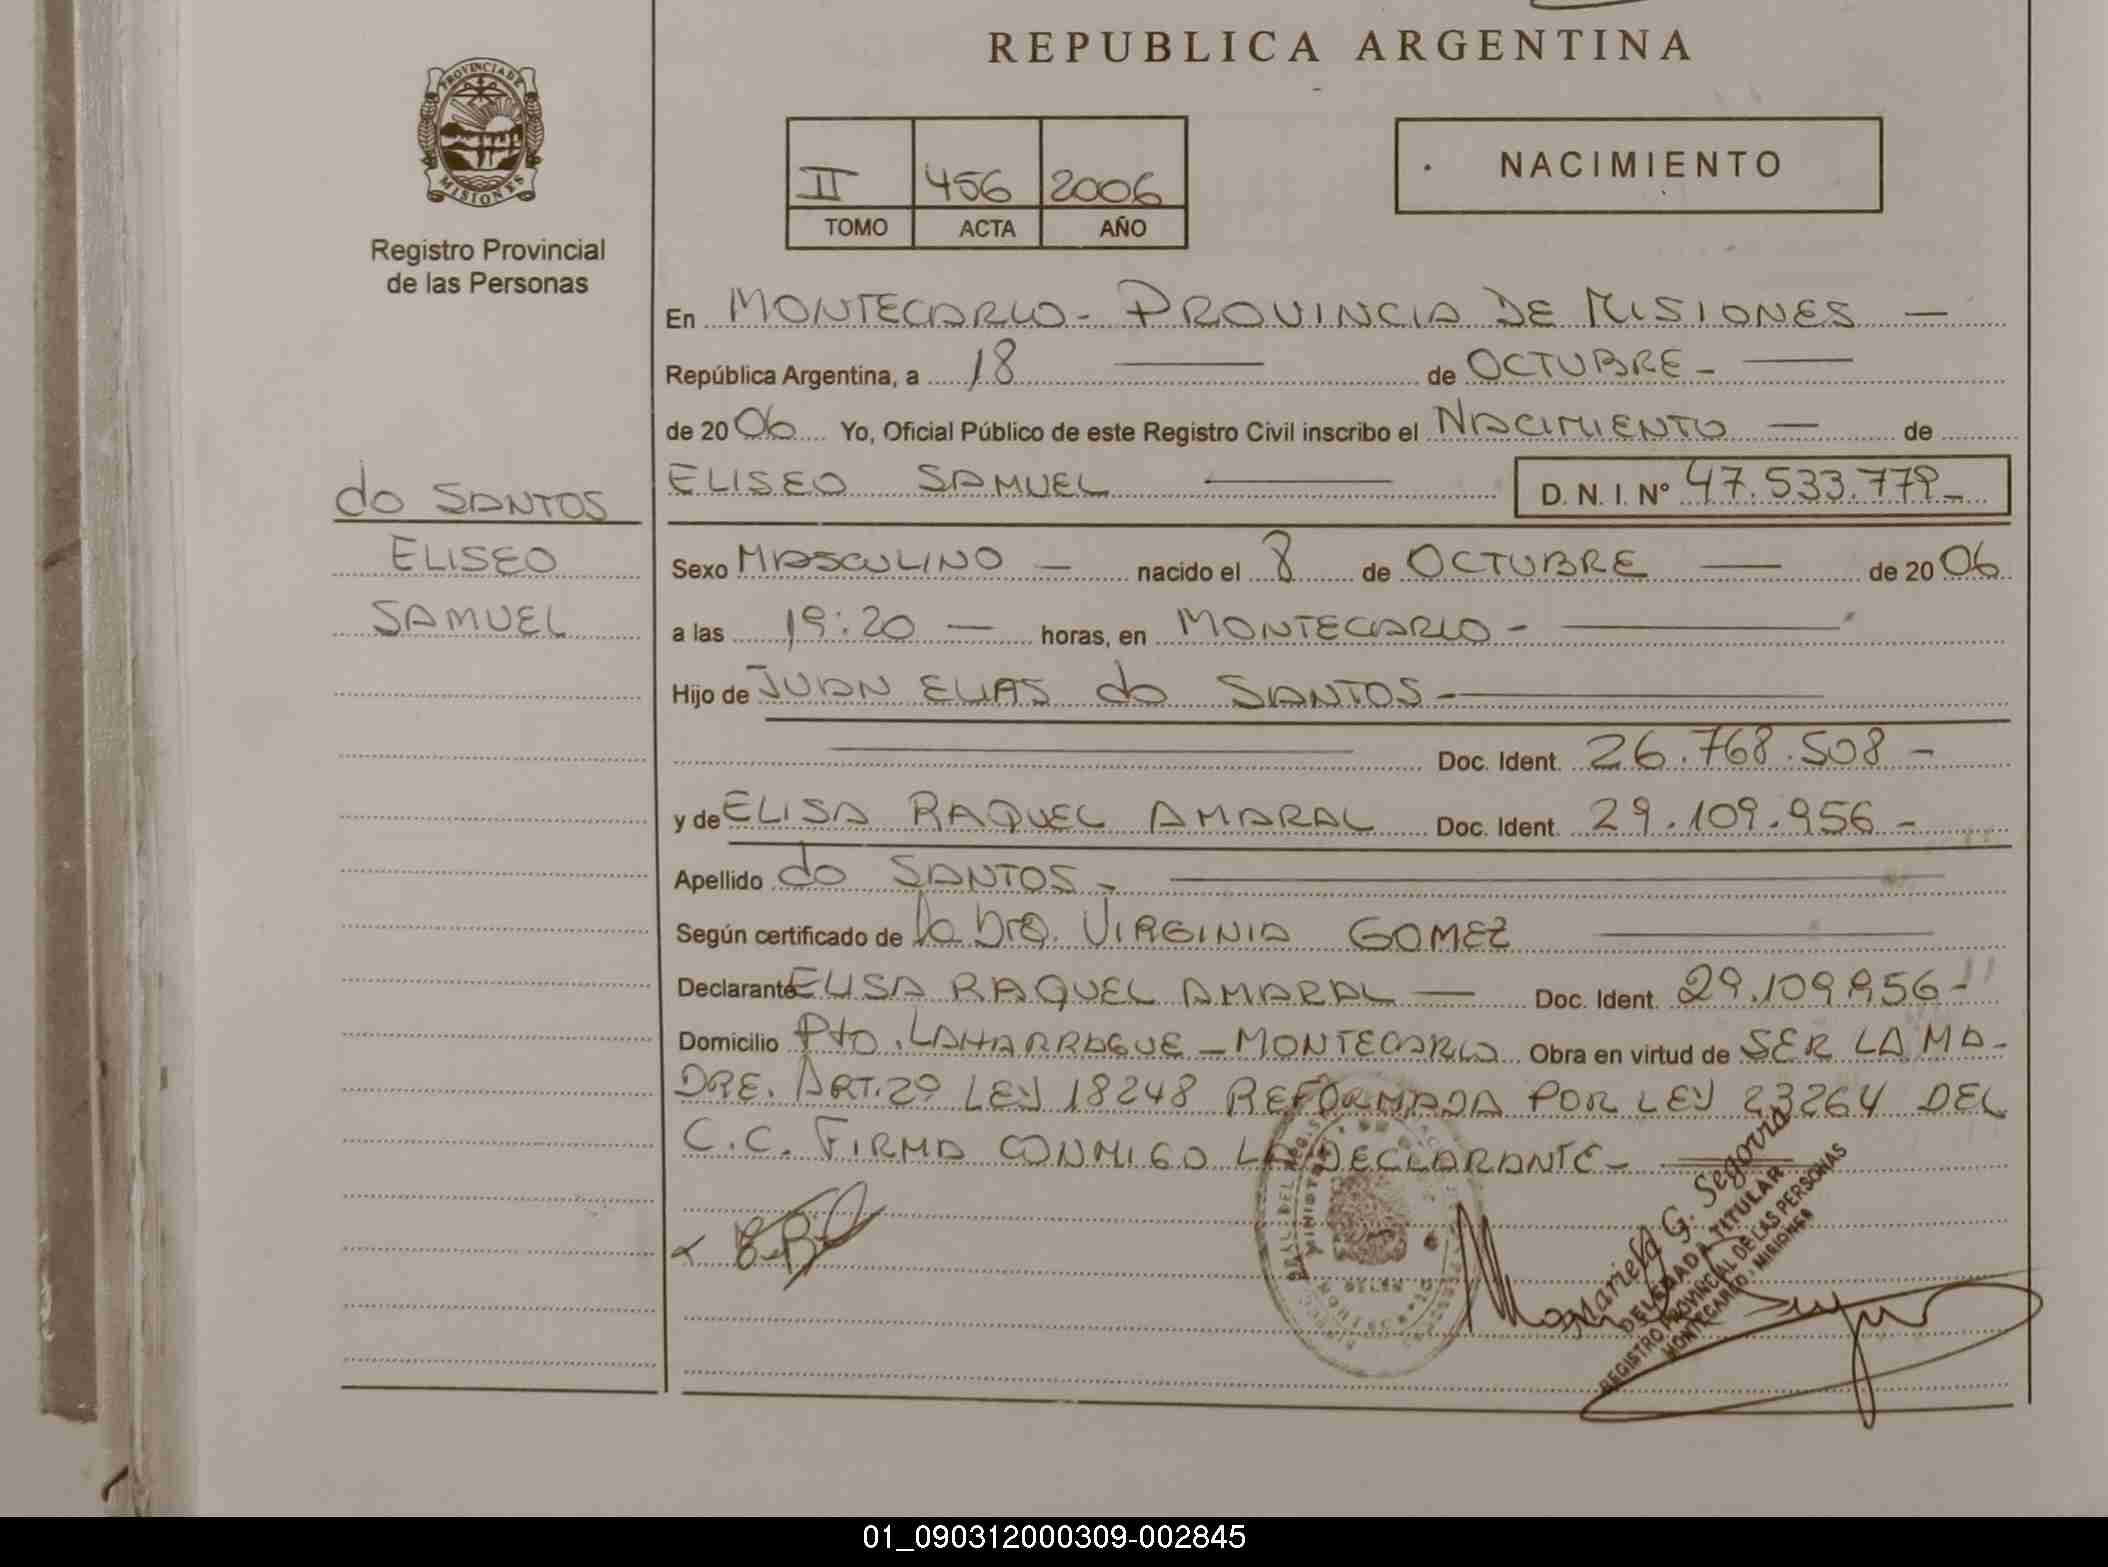 REPUBLICA ARGENTINA
PROVINCIA DE
MISIONES
Registro Provincial
de las Personas
II 456 2006
TOMO ACTA AÑO
NACIMIENTO
En MONTECARLO - PROVINCIA DE MISIONES —
República Argentina, a 18 — de OCTUBRE - —
de 20 06 Yo, Oficial Público de este Registro Civil inscribo el NACIMIENTO — de
ELISEO SAMUEL — D. N. I. Nº 47.533.779-
do SANTOS
ELISEO
SAMUEL
Sexo MASCULINO — nacido el 8 de OCTUBRE — de 20 06
a las 19:20 — horas, en MONTECARLO - —
Hijo de JUAN ELIAS do SANTOS - —
— Doc. Ident. 26.768.508 -
y de ELISA RAQUEL AMARAL Doc. Ident. 29.109.956 -
Apellido do SANTOS - —
Según certificado de la Dra. VIRGINIA GOMEZ —
Declarante ELISA RAQUEL AMARAL — Doc. Ident. 29.109.956 -
Domicilio Pto. LAHARRAGUE - MONTECARLO Obra en virtud de SER LA MA-
DRE. ART. 2º LEY 18248 REFORMADA POR LEY 23264 DEL
C.C. FIRMA CONMIGO LA DECLARANTE - —
Mariela G. Segovia
DELEGADA TITULAR
REGISTRO PROVINCIAL DE LAS PERSONAS
MONTECARLO - MISIONES
01_090312000309-002845